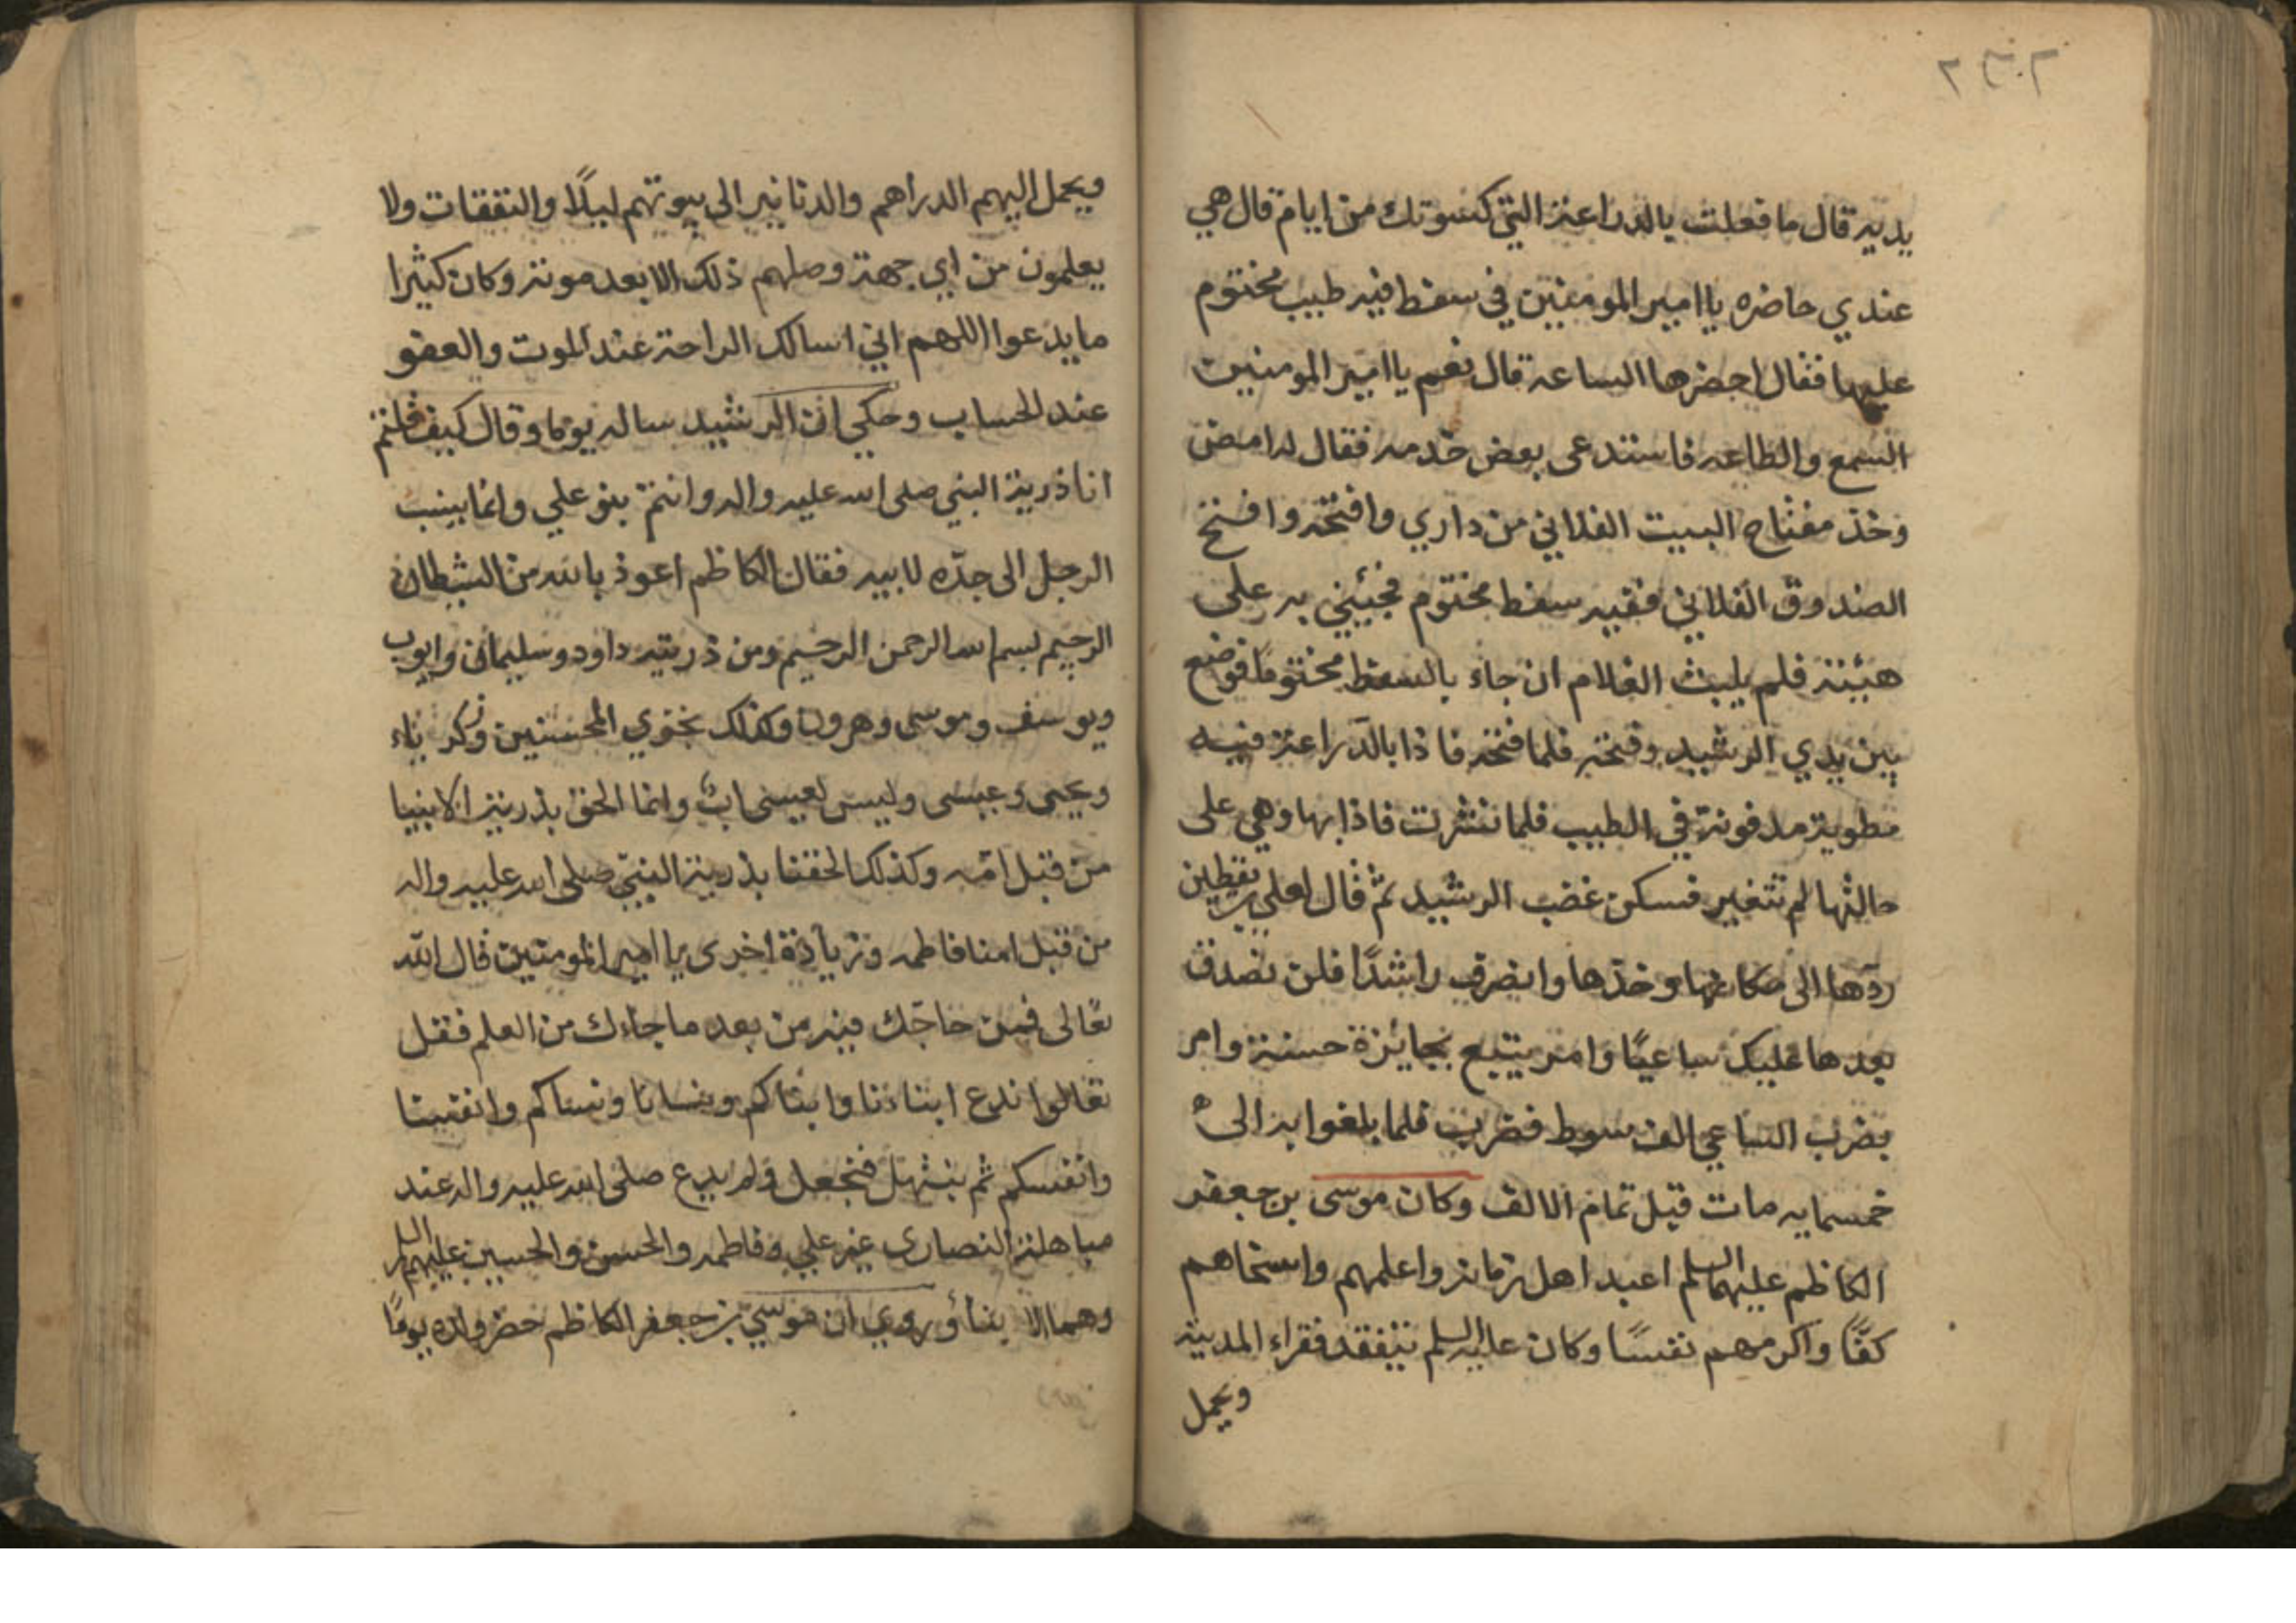 يديه قال ما فعلت بالدراعة التي كسوتك من ايام قال هي
عندي حاضره يا امير المومنين في سفط فيه طيب مختوم
عليها فقال احضرها الساعه قال نعم يا امير المومنين
السمع والطاعه فاستدعى بعض خدمه فقال له امض
وخذ مفتاح البيت الفلاني من داري وافتحه وافتح
الصندوق الفلاني ففيه سفط مختوم فجيئني به على
هيئته فلم يلبث الغلام ان جاء بالسفط مختوما فوضع
بين يدي الرشيد وفتحه فلما فتحه فاذا بالدراعة فيه
مطوية مدفونة في الطيب فلما نشرت فاذا بها وهي على
حالتها لم تتغير فسكن غضب الرشيد ثم قال لعلي بن يقطين
ردها الى مكانها وخذها وانصرف راشدًا فلن نصدق
بعدها عليك ساعيًا وامر يتبع بجايزة حسنة وامر
بضرب الساعي الف سوط فضرب فلما بلغوا به الى
خمسمايه مات قبل تمام الالف وكان موسى بن جعفر
الكاظم عليهما السلم اعبد اهل زمانه واعلمهم واسخاهم
كفًا واكرمهم نفسًا وكان عليه السلم يتفقد فقراء المدينة
ويحمل
ويحمل اليهم الدراهم والدنانير الى بيوتهم ليلًا والنفقات ولا
يعلمون من اي جهة وصلهم ذلك الا بعد موته وكان كثيرا
ما يدعوا اللهم اني اسالك الراحة عند الموت والعفو
عند الحساب وحكي ان الرشيد ساله يوما وقال كيف قلتم
انا ذرية النبي صلى الله عليه واله وانتم بنو علي وانما ينسب
الرجل الى جدّه لابيه فقال الكاظم اعوذ بالله من الشيطان
الرجيم بسم الله الرحمن الرحيم ومن ذريته داود وسليمان وايوب
ويوسف وموسى وهرون وكذلك نجزي المحسنين وزكرياء
ويحيى وعيسى وليس لعيسى اب وانما الحق بذرية الانبيا
من قبل امّه وكذلك الحقنا بذرية النبيّ صلى الله عليه واله
من قبل امنا فاطمه وزيادة اخرى يا امير المومنين قال الله
تعالى فمن حاجّك فيه من بعد ما جاءك من العلم فقل
تعالوا ندع ابناءنا وابناكم ونسانا ونساكم وانفسنا
وانفسكم ثم نبتهل فنجعل ولم يدع صلى الله عليه واله عند
مباهلة النصارى غير علي وفاطمه والحسن والحسين عليهم السلم
وهما الابنا وروي ان موسى بن جعفر الكاظم حضر ولده يومًا